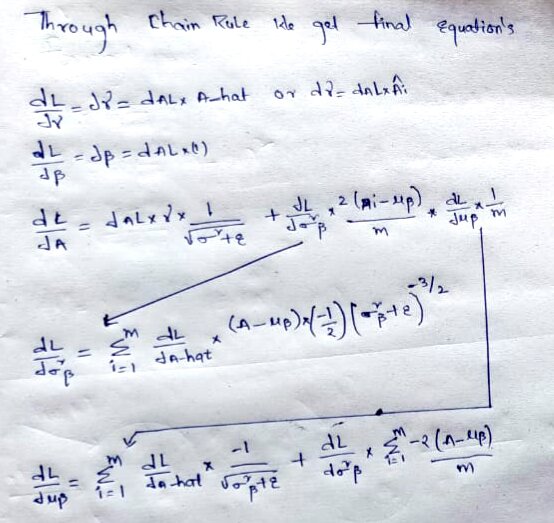 Through Chain Rule We get final equation's
dL/dγ = dγ = dAL x A-hat or dγ = dAL x Âi
dL/dβ = dβ = dAL x (1)
dL/dA = dAL x γ x 1/√σ²+ε + dL/dσ²β x 2(Ai-μβ)/m * dL/dμβ x 1/m
dL/dσ²β = Σ^m_{i=1} dL/dA-hat x (A-μβ) x (-1/2) (σ²β+ε)^{-3/2}
dL/dμβ = Σ^m_{i=1} dL/dA-hat x -1/√σ²β+ε + dL/dσ²β x Σ^m_{i=1} -2(A-μβ)/m